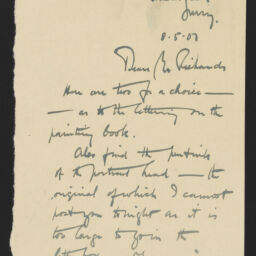 Surrey.
8.5.07
Dear Mr Richards
Here are two for a choice —
— as to the lettering on the
painting book.
Also find the
of the portrait head — the
original of which I cannot
post you tonight as it is
too large to go in the
letter box